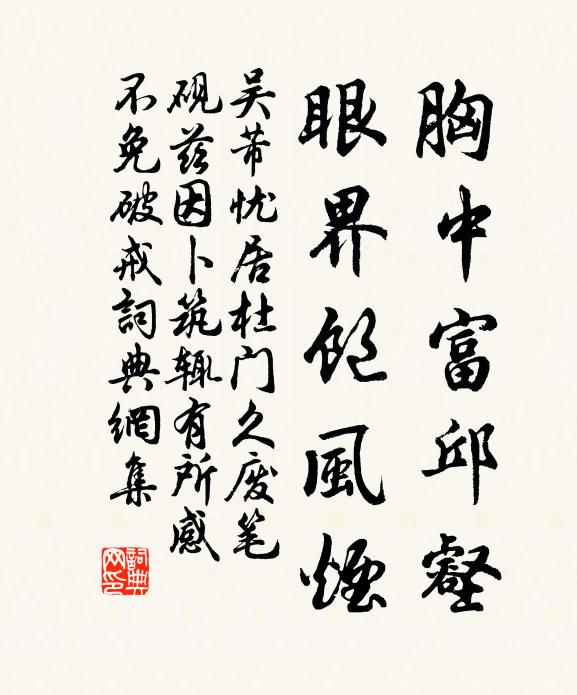 胸中富邱壑
眼界飽風煙
吴芾忧居杜门久废笔
砚兹因卜筑辄有所感
不免破戒詞典網集
詞典网印